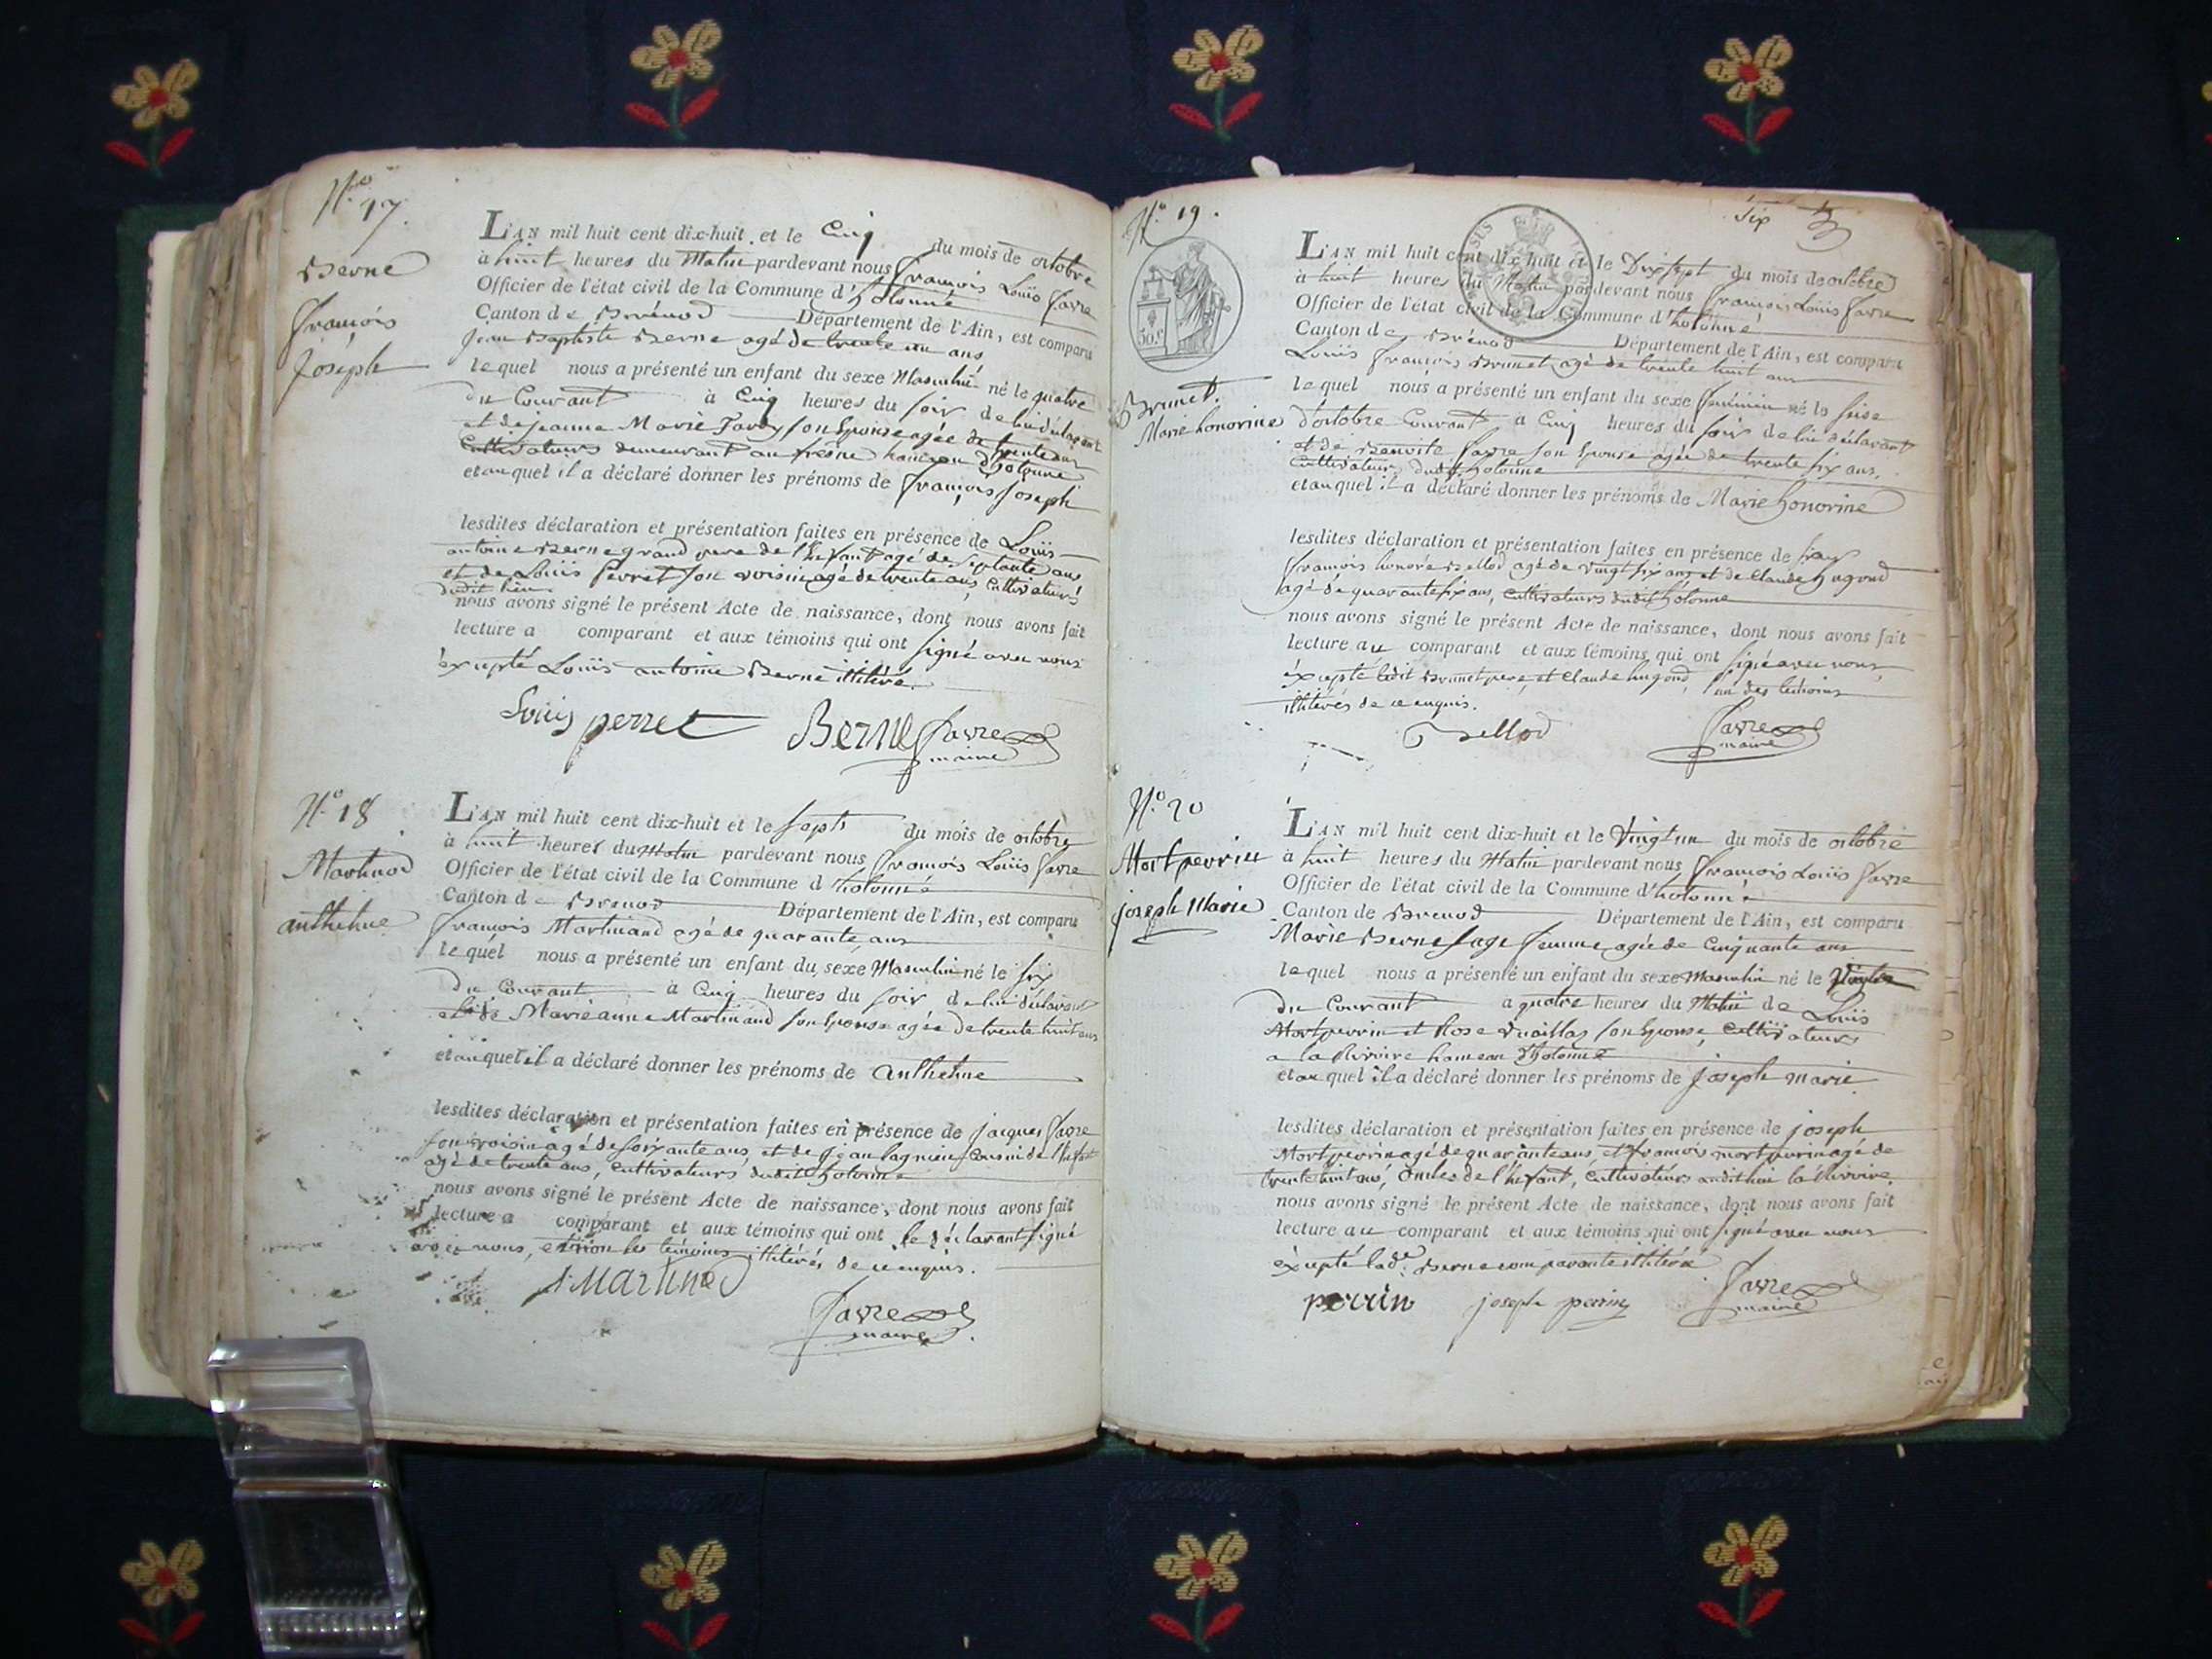 N.o 17.
Berne
françois
joseph
L'AN mil huit cent dix-huit et le Cinq du mois de octobre
à huit heures du Matin pardevant nous françois Louis favre
Officier de l'état civil de la Commune d'hotonne
Canton de Brénod Département de l'Ain, est comparu
jean Baptiste Berne agé de trente un ans
lequel nous a présenté un enfant du sexe Masculin né le quatre
du Courant à Cinq heures du soir de lui déclarant
et de jeanne Marie Tardy son Epouse agée de trente ans
Cultivateurs demeurant au fresne hameau d'hotonne
et auquel il a déclaré donner les prénoms de françois joseph
lesdites déclaration et présentation faites en présence de Louis
antoine Berne grand pere de l'Enfant agé de Septante ans
et de Louis perret son voisin agé de trente ans, Cultivateurs
dudit lieu.
nous avons signé le présent Acte de naissance, dont nous avons fait
lecture a comparant et aux témoins qui ont signé avec nous
éxcepté Louis antoine Berne illitéré.
Louis perret Berne favre
maire
N.o 18
Martinod
anthelme
L'AN mil huit cent dix-huit et le Sept du mois de octobre
à huit heures du Matin pardevant nous françois Louis favre
Officier de l'état civil de la Commune d hotonne
Canton de Brenod Département de l'Ain, est comparu
françois Martinand agé de quarante ans
lequel nous a présenté un enfant du sexe Masculin né le six
du Courant à Cinq heures du soir de lui déclarant
et de Marieanne Martinand son Epouse agée de trente huit ans
et auquel il a déclaré donner les prénoms de anthelme
lesdites déclaration et présentation faites en présence de jacques favre
son voisin agé de soixante ans, et de jean Cousin de l'Enfant
agé de trente ans, Cultivateurs dudit hotonne
nous avons signé le présent Acte de naissance, dont nous avons fait
lecture a comparant et aux témoins qui ont le déclarant signé
avec nous, et non les témoins illitérés de ce enquis.
Martinod
favre
maire
N.o 19.
six
50 c
Brunet.
Marie honorine
L'AN mil huit cent dix-huit et le Dix sept du mois de octobre
à huit heures du Matin pardevant nous françois Louis favre
Officier de l'état civil de la Commune d'hotonne
Canton de Brénod Département de l'Ain, est comparu
Louis françois Brunet agé de trente huit ans
lequel nous a présenté un enfant du sexe féminin né le seise
d'octobre Courant à Cinq heures du soir de lui déclarant
et de Benoite favre son Epouse agée de trente six ans.
Cultivateurs dudit hotonne
et auquel il a déclaré donner les prénoms de Marie honorine
lesdites déclaration et présentation faites en présence de
françois honoré Bellod agé de vingt six ans et de Claude hugond
agé de quarante six ans, Cultivateurs dudit hotonne
nous avons signé le présent Acte de naissance, dont nous avons fait
lecture au comparant et aux témoins qui ont signé avec nous,
éxcepté ledit Brunet pere, et Claude hugond, un des témoins
illitérés de ce enquis.
Bellod favre
maire
N.o 20
Mort perrin
joseph Marie
L'AN mil huit cent dix-huit et le Vingt un du mois de octobre
à huit heures du Matin pardevant nous françois Louis favre
Officier de l'état civil de la Commune d'hotonne
Canton de Brenod Département de l'Ain, est comparu
Marie Berne sage femme agée de Cinquante ans
lequel nous a présenté un enfant du sexe Masculin né le Vingt
du Courant à quatre heures du Matin de Louis
Mortperrin et Rose son Epouse, Cultivateurs
a la Rivoire hameau d'hotonne
et auquel il a déclaré donner les prénoms de joseph marie.
lesdites déclaration et présentation faites en présence de joseph
Mortperrin agé de quarante ans, et françois mortperrin agé de
trente huit ans, oncles de l'Enfant, Cultivateurs audit lieu la Rivoire.
nous avons signé le présent Acte de naissance, dont nous avons fait
lecture au comparant et aux témoins qui ont signé avec nous
éxcepté lad.e Berne comparante illitérée
perrin joseph perrin favre
maire